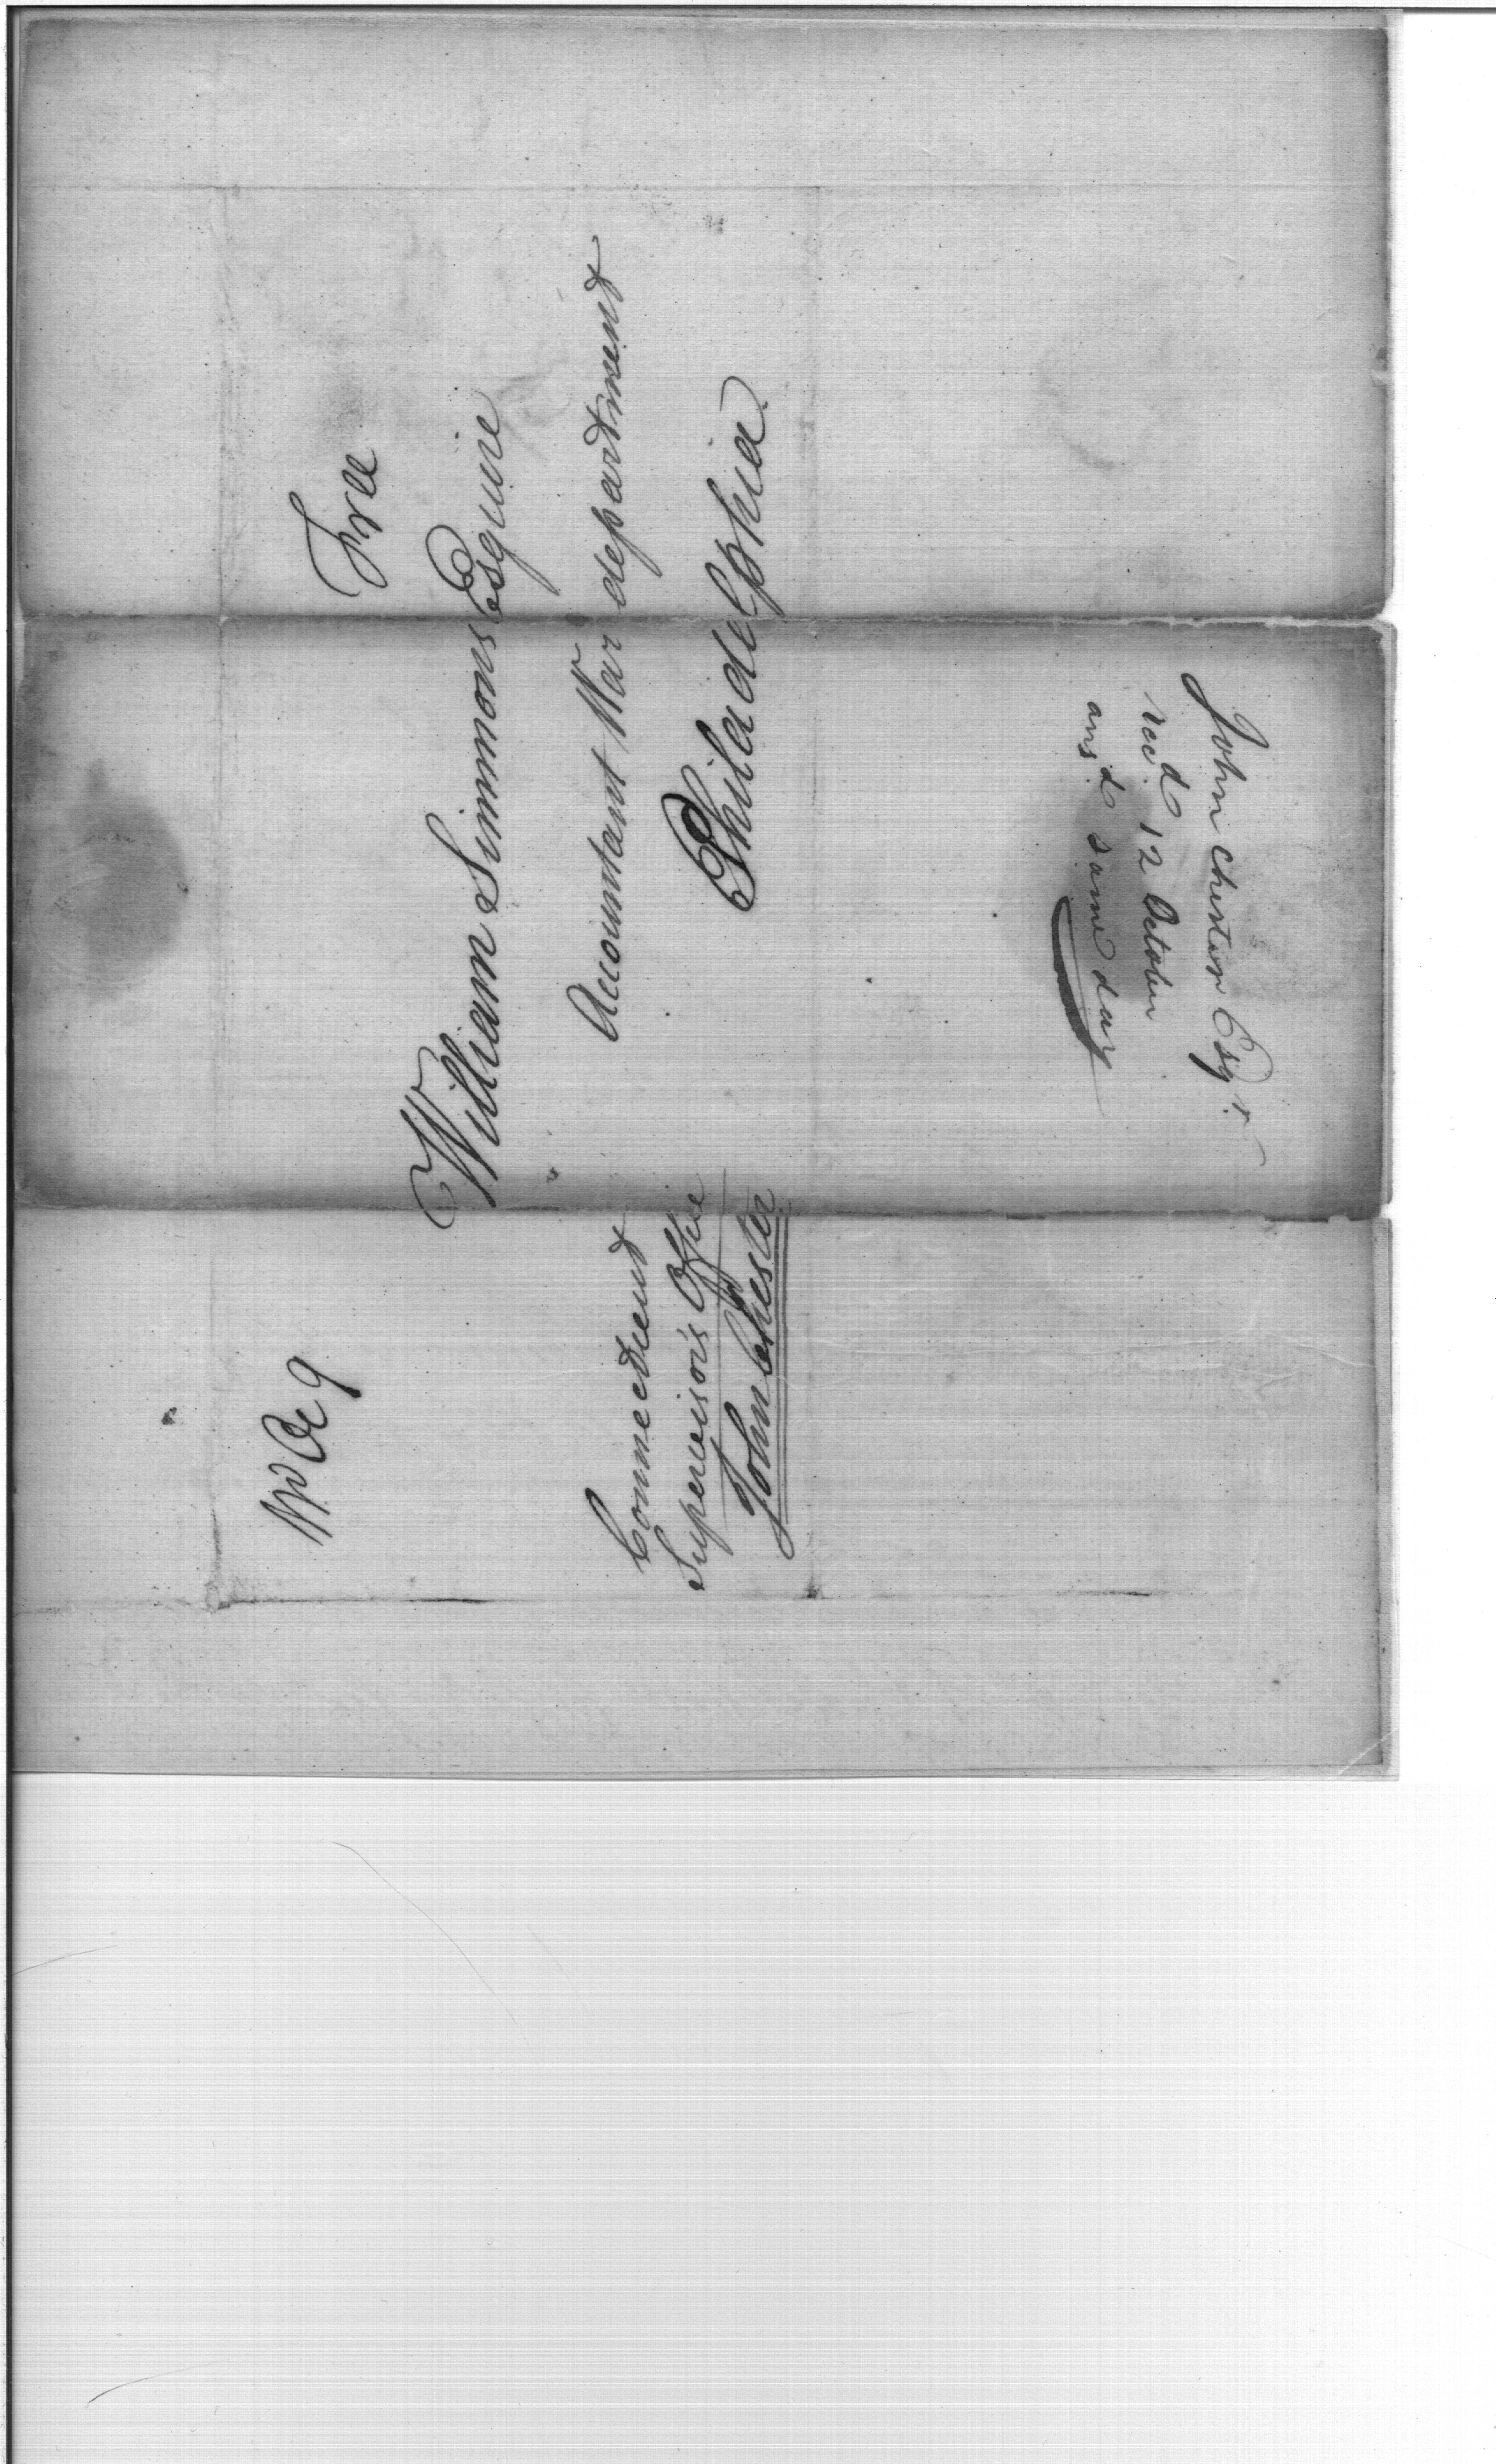 Free
William Simmons Esquire
Accountant War department
Philadelphia
Oc 9
Connecticut
Supervisor's Office
John Chester
John Chester Esqr.
recd. 12 October
ansd. same day